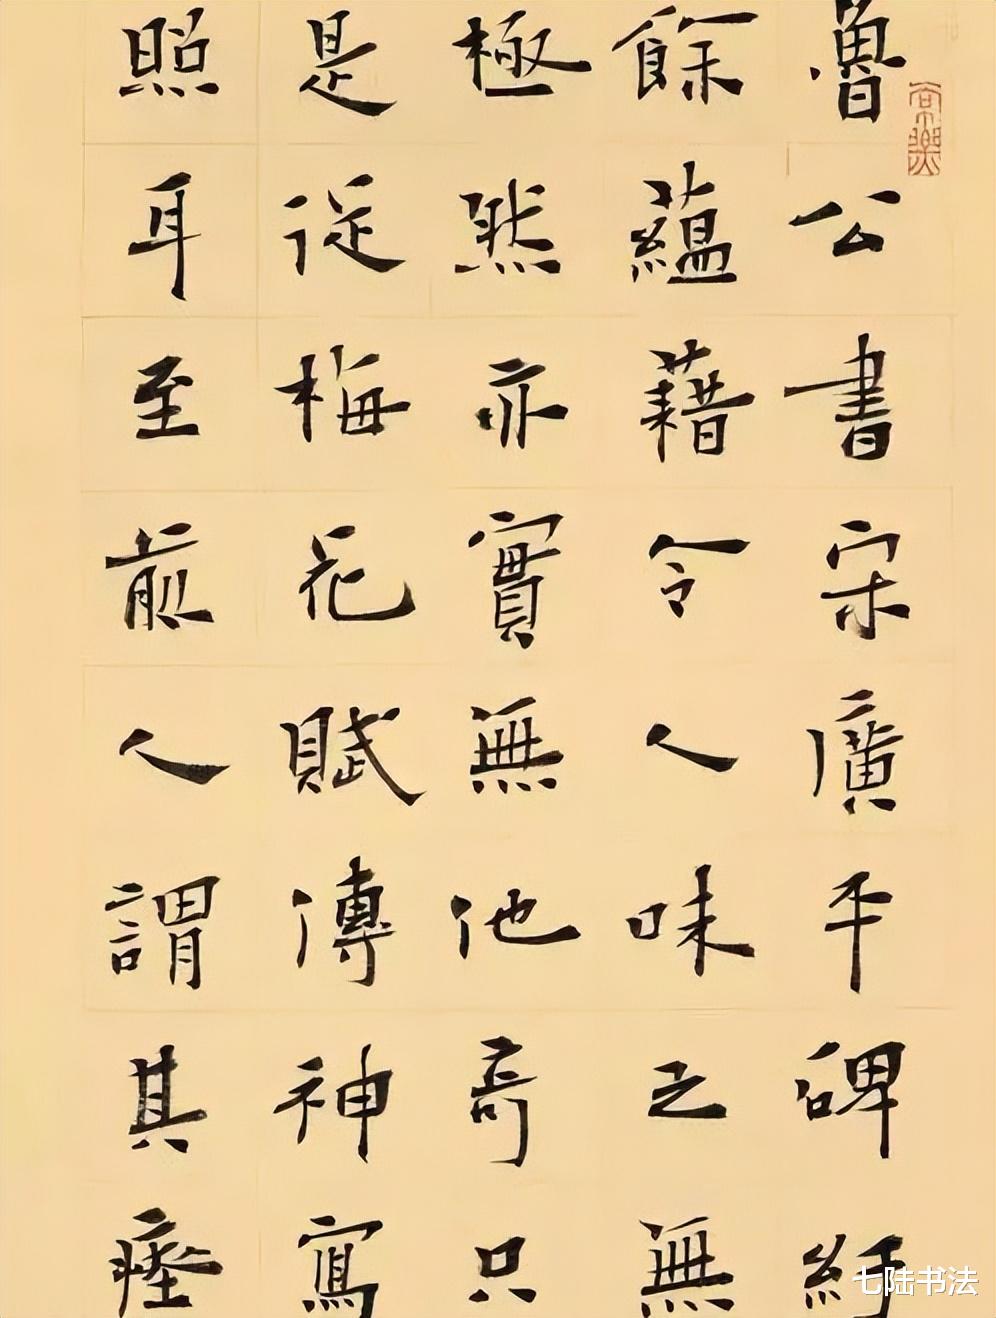 魯公書宋廣平碑紆
餘蘊藉令人味之無
極然亦實無他奇只
是從梅花賦傳神寫
照耳至前人謂其瘞
七陆书法